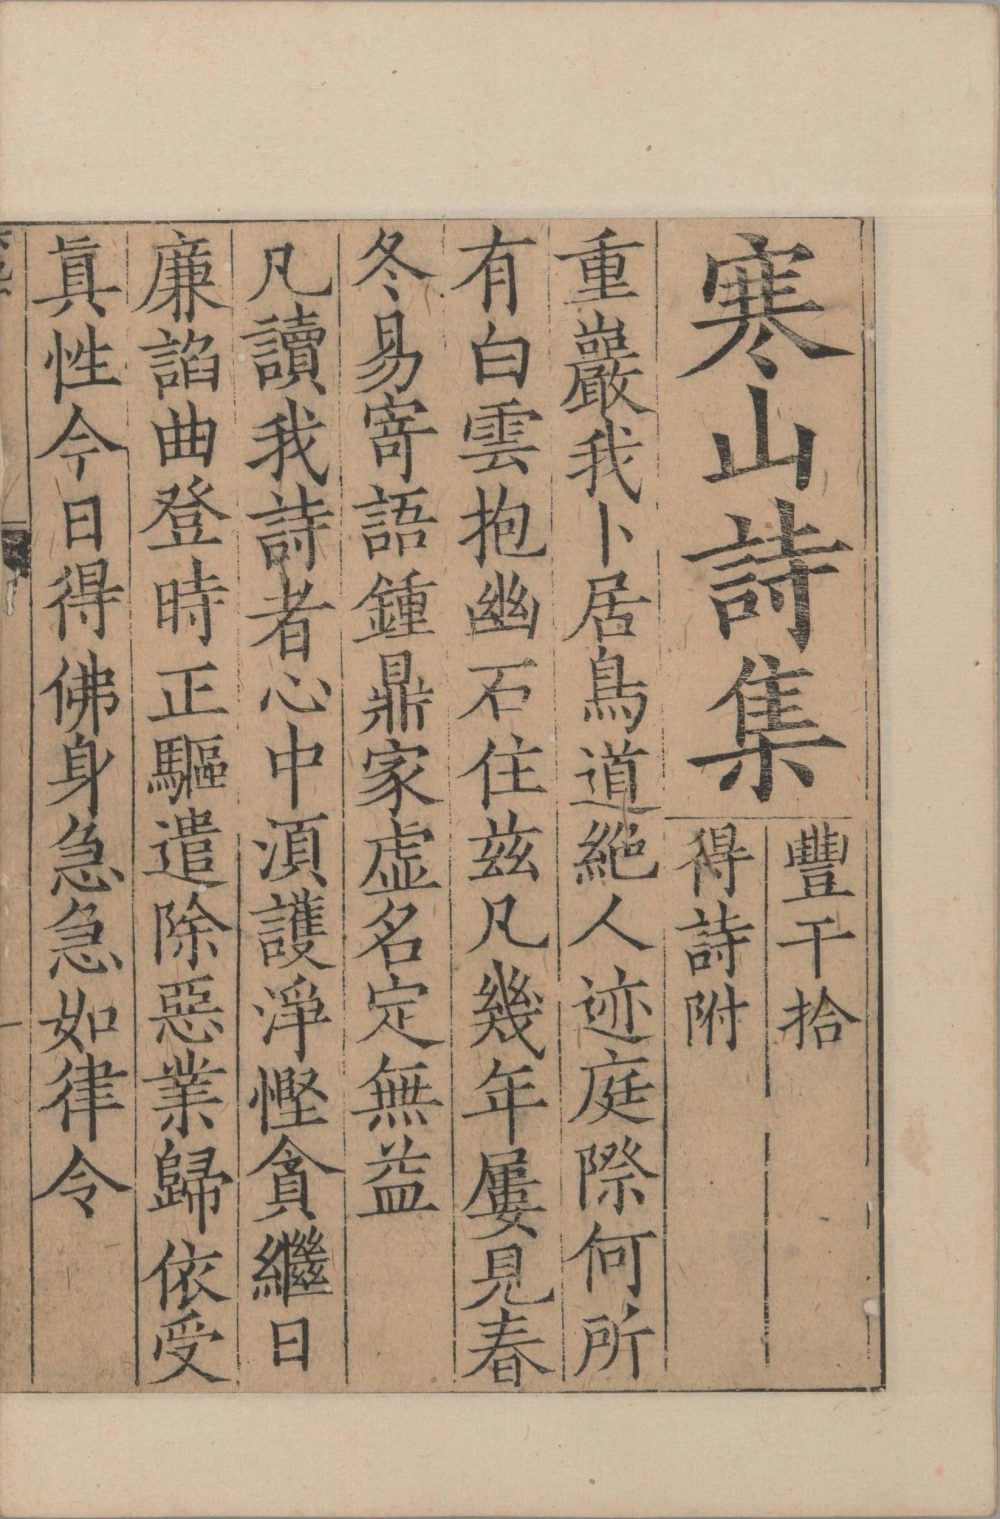 寒山詩集
豐干拾
得詩附
重巖我卜居鳥道絶人迹庭際何所
有白雲抱幽石住茲凡幾年屢見春
冬易寄語鍾鼎家虛名定無益
凡讀我詩者心中湏護淨慳貪繼日
廉諂曲登時正驅遣除惡業歸依受
真性今日得佛身急急如律令